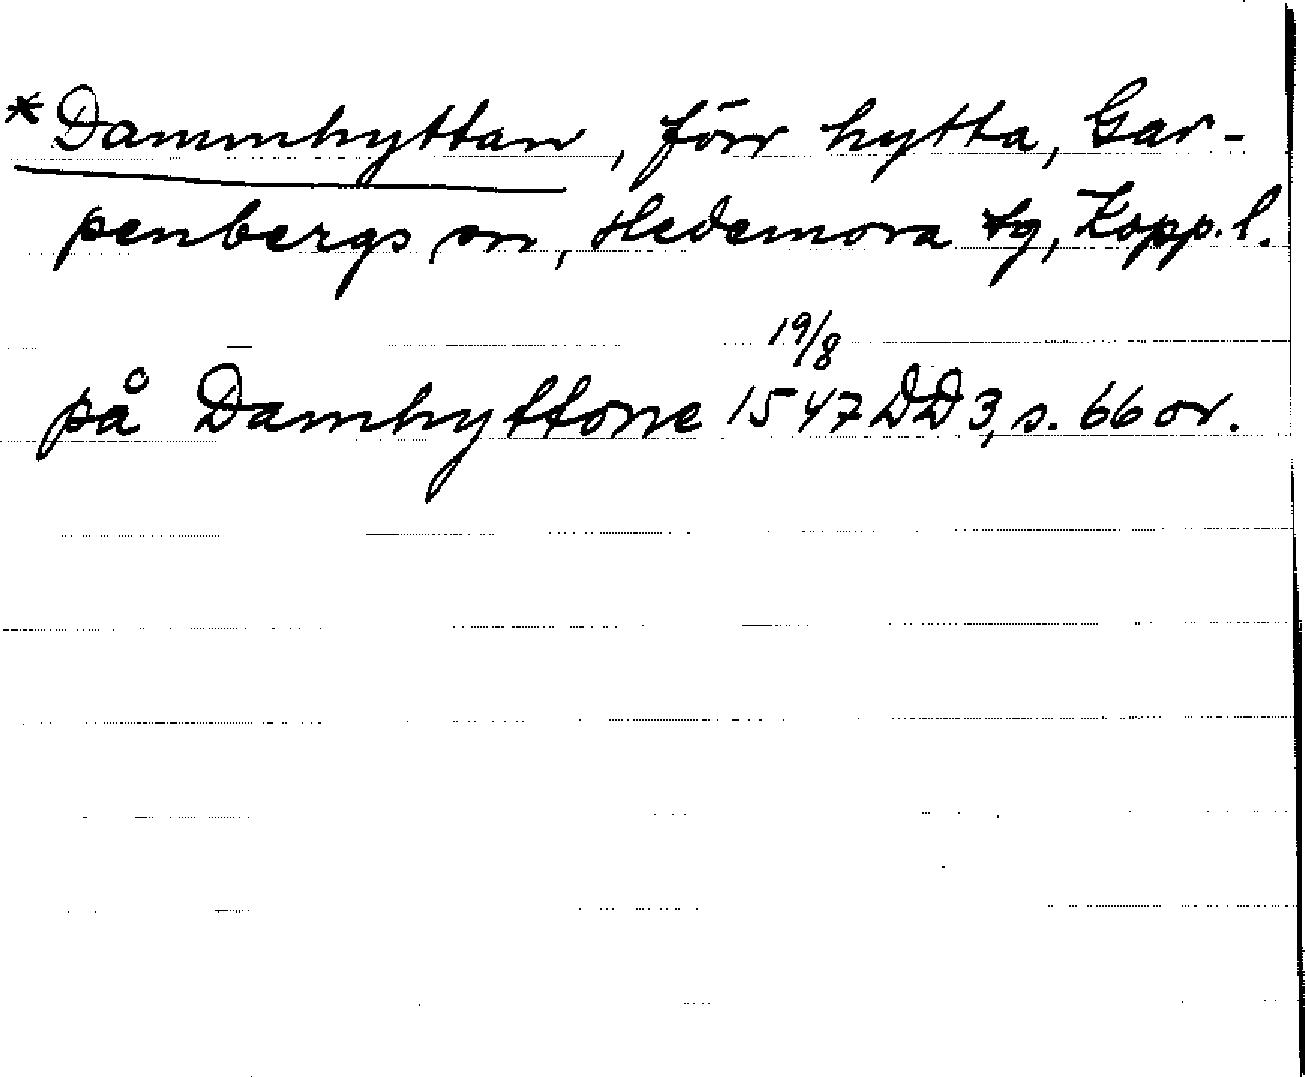 *Dammhyttan, förr hytta, Gar-
penbergs sn, Hedemora tg, Kopp. l.
på Damhyttone 19/8 1547 DD 3, s. 66 or.